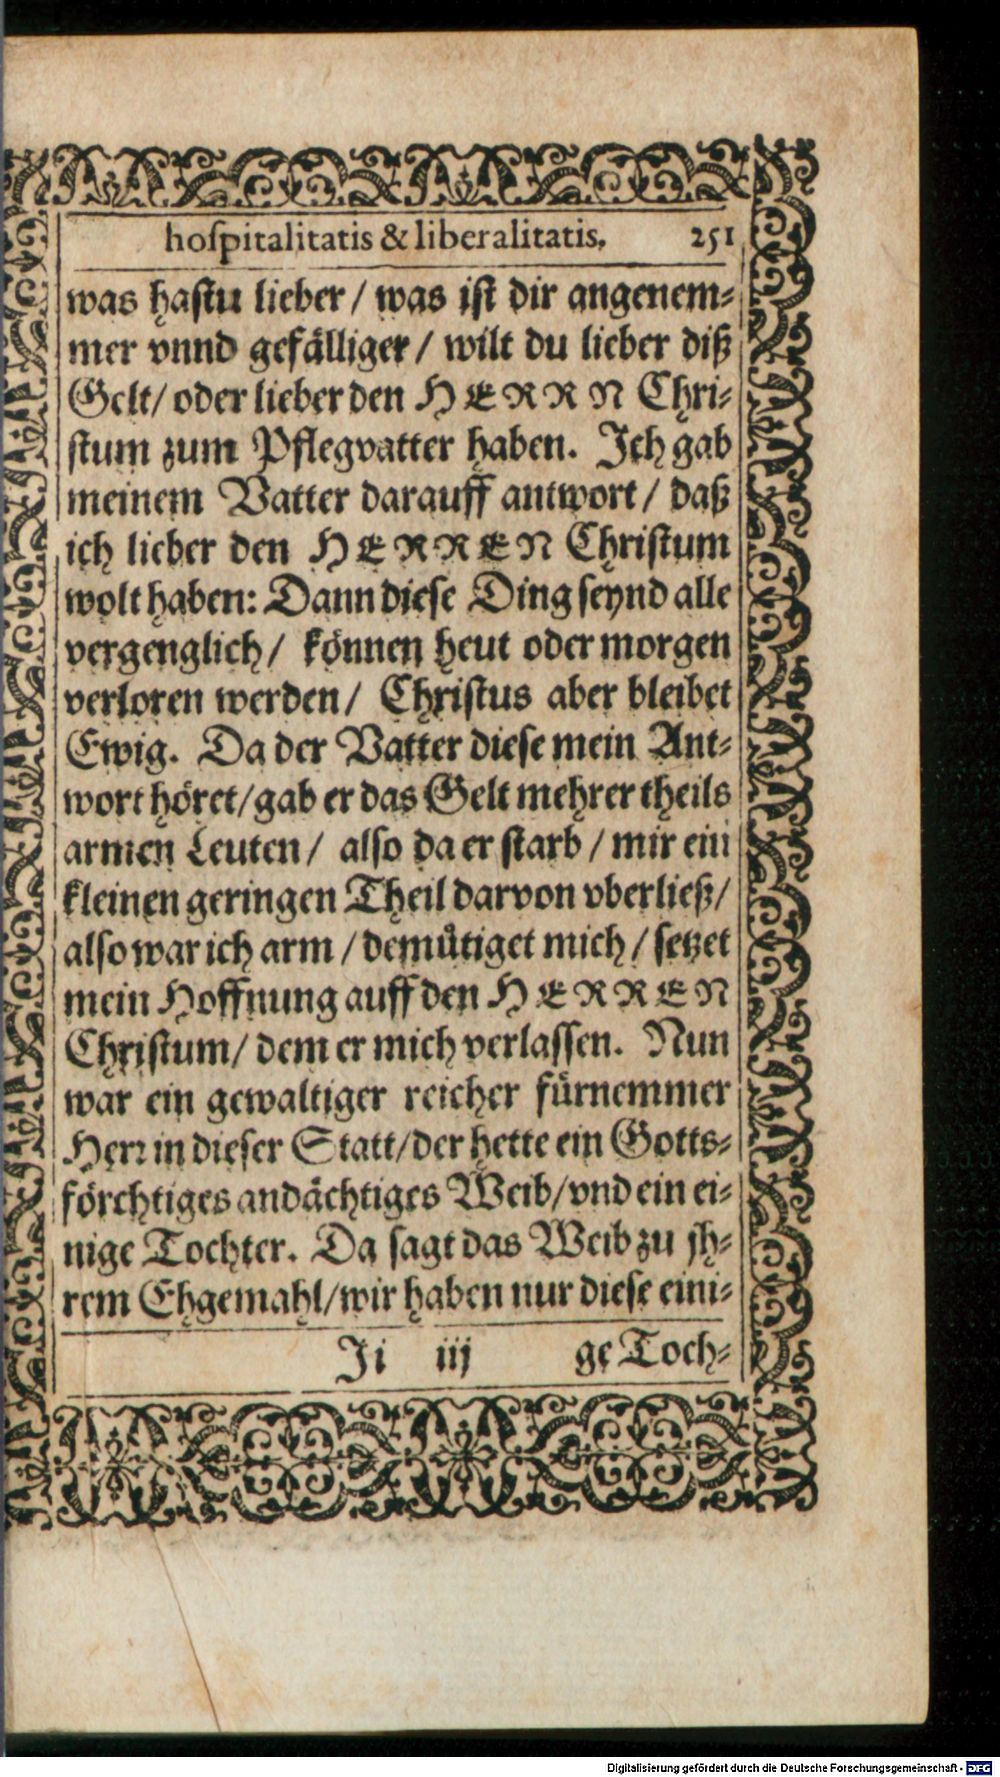 hoſpitalitatis & liberalitatis. 251
was haſtu lieber / was iſt dir angenem-
mer vnnd gefälliger / wilt du lieber diß
Gelt / oder lieber den HERRN Chri-
ſtum zum Pflegvatter haben. Ich gab
meinem Vatter darauff antwort / daß
ich lieber den HERREN Chriſtum
wolt haben: Dann dieſe Ding ſeynd alle
vergenglich / können heut oder morgen
verloren werden / Chriſtus aber bleibet
Ewig. Da der Vatter dieſe mein Ant-
wort höret / gab er das Gelt mehrer theils
armen Leuten / alſo da er ſtarb / mir ein
kleinen geringen Theil darvon vberließ /
alſo war ich arm / demuͤtiget mich / ſetzet
mein Hoffnung auff den HERREN
Chriſtum / dem er mich verlaſſen. Nun
war ein gewaltiger reicher fürnemmer
Herꝛ in dieſer Statt / der hette ein Gotts-
förchtiges andächtiges Weib / vnd ein ei-
nige Tochter. Da ſagt das Weib zu jh-
rem Ehgemahl / wir haben nur dieſe eini-
Ii iij ge Toch-
Digitalisierung gefördert durch die Deutsche Forschungsgemeinschaft - DFG